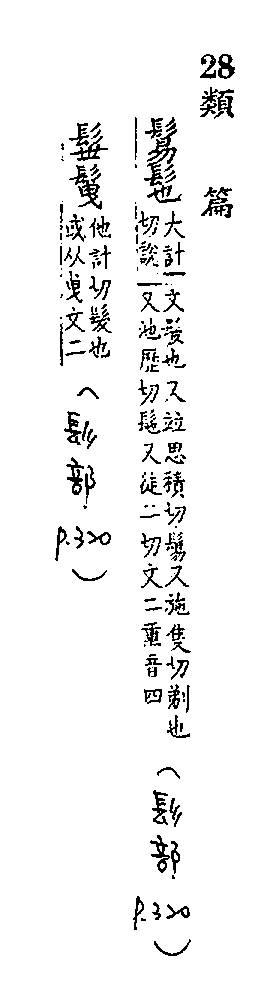 28 類篇
鬄髢 大計切說文髲也又竝思積切鬄又施隻切剃也
又池歷切髢又徒二切文二重音四
(髟部 p.320)
他計切髲也
或从曳文二
(髟部 p.320)